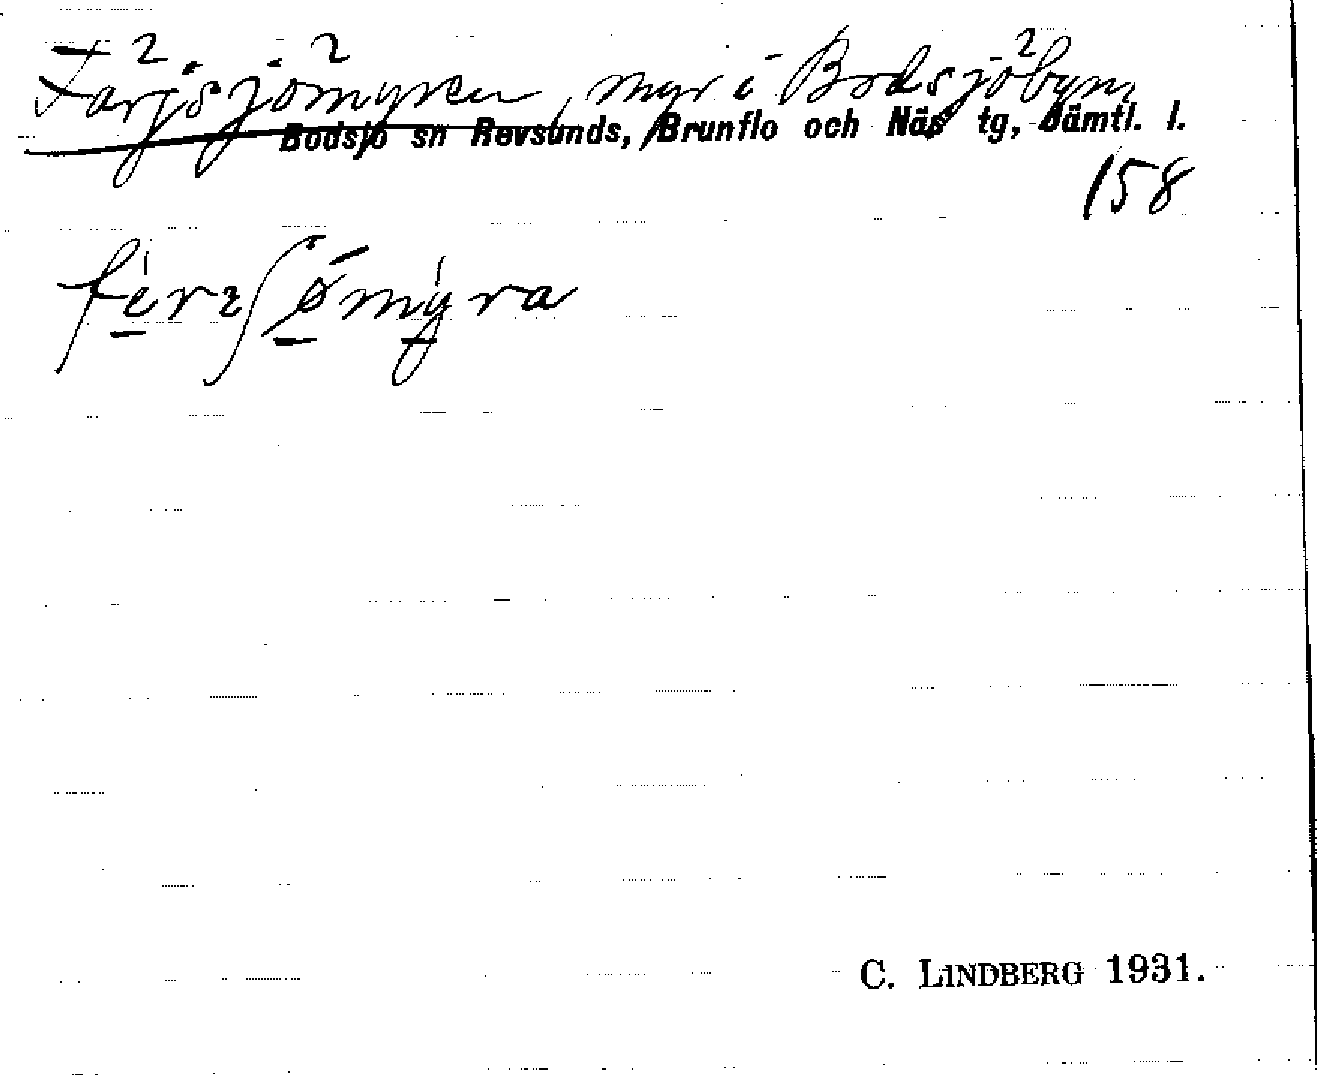 Färjsjömyren, myr i Bodsjöbyn
Bodsjö sn Revsunds, Brunflo och Näs tg, Jämtl. l.
158
C. LINDBERG 1931.